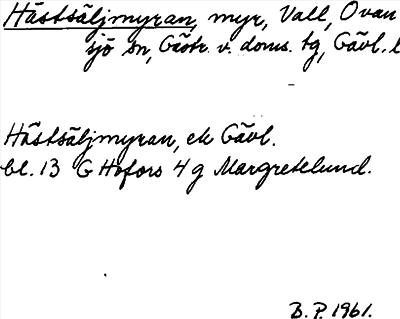 Hästsäljmyran, myr, Vall, Ovan
sjö sn, Gästr. v. doms. tg, Gävl. l
Hästsäljmyran, ek Gävl.
bl. 13 G Hofors 4 g Margretelund.
B. P. 1961.